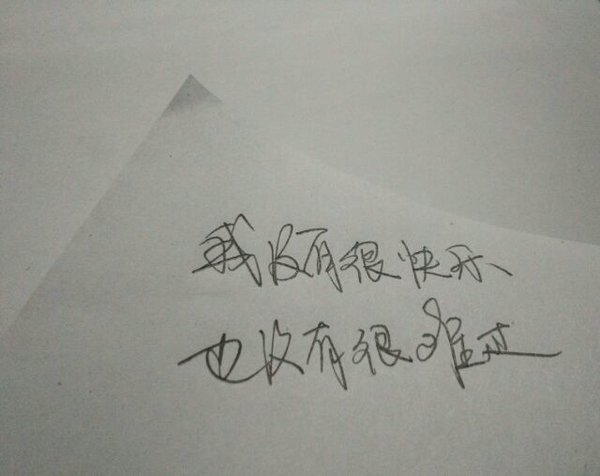 我没有很快乐
也没有很难过